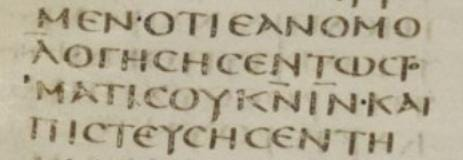 ΜΕΝ·ΟΤΙΕΑΝΟΜΟ
ΛΟΓΗCΗCΕΝΤΩCΤΟ
ΜΑΤΙCΟΥΚ̅Ν̅Ι̅Ν̅·ΚΑΙ
ΠΙCΤΕΥCΗCΕΝΤΗ